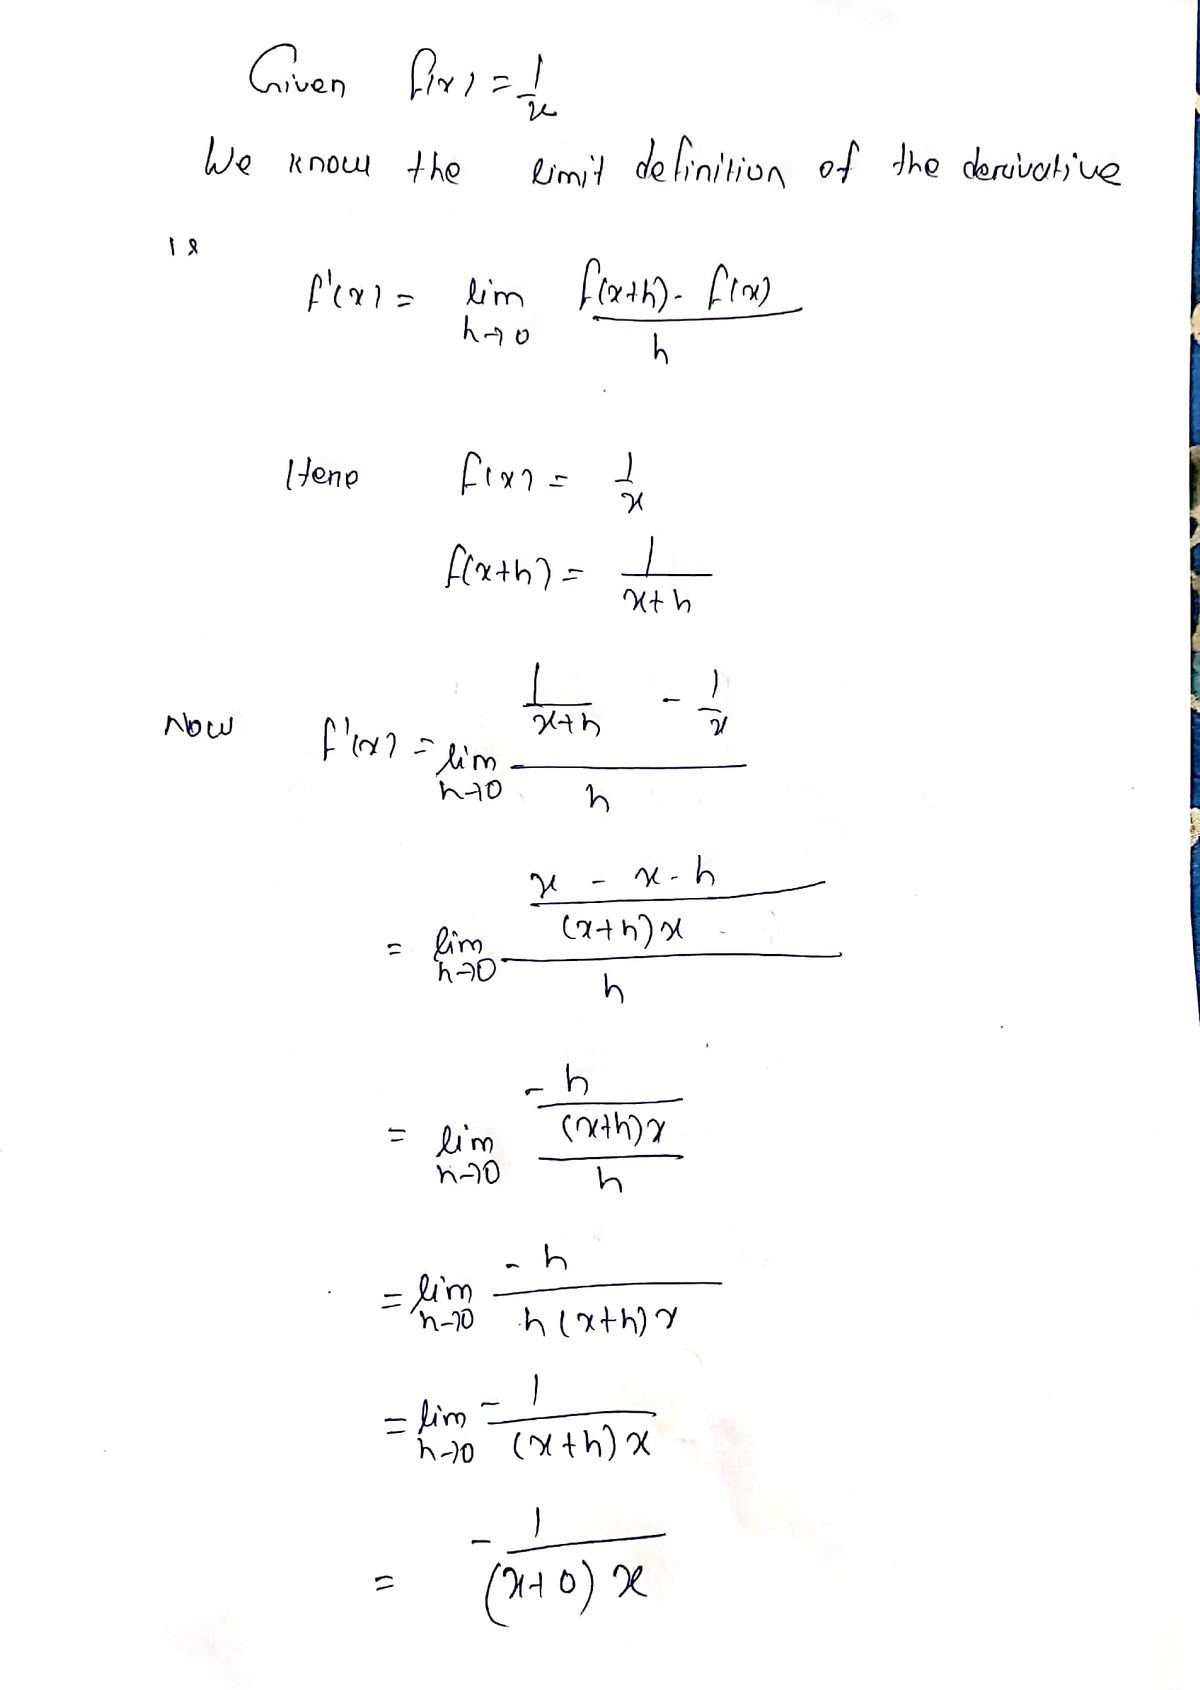 Given f(x) = 1/x
We know the limit definition of the derivative
is
f'(x) = lim h→0 (f(x+h) - f(x))/h
Here f(x) = 1/x
f(x+h) = 1/(x+h)
Now f'(x) = lim h→0 (1/(x+h) - 1/x)/h
= lim h→0 ((x - x - h)/((x+h)x))/h
= lim h→0 (-h/((x+h)x))/h
= lim h→0 -h/(h(x+h)x)
= lim h→0 -1/((x+h)x)
= -1/((x+0)x)